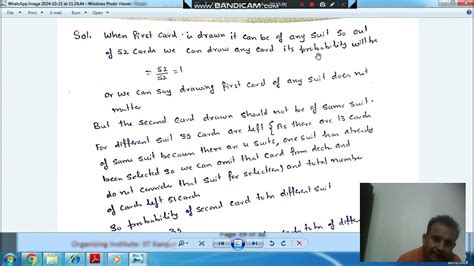 WhatsApp Image 2024-10-21 at 11.24.44 - Windows Photo Viewer
www.BANDICAM.com
Sol. When first card is drawn it can be of any suit so out
of 52 cards we can draw any card its probability will be
= 52/52 = 1
or we can say drawing first card of any suit does not
matter
But the second card drawn should not be of same suit.
For different suit 39 cards are left {As there are 13 cards
of same suit because there are 4 suits, one suit has already
been selected so we can omit that card from deck and
do not consider that suit for selection} and total number
of cards left 51 cards
So probability of second card to be different suit
39
Organizing Institute: IIT Kanpur